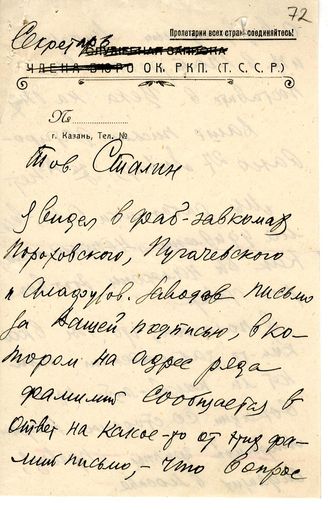 72
Пролетарии всех стран соединяйтесь!
Секретарь
СЛУЖЕБНАЯ ЗАПИСКА
ЧЛЕНА БЮРО ОК. РКП. (Т. С. С. Р.)
№
г. Казань, Тел. №
Тов. Сталин
Я видел в фаб-завкомах
Пороховского, Пугачевского
и Алафузов. заводов письмо
за Вашей подписью, в ко-
тором на адрес ряда
фамилий сообщается в
ответ на какое-то от этих фа-
милий письмо, - что вопрос